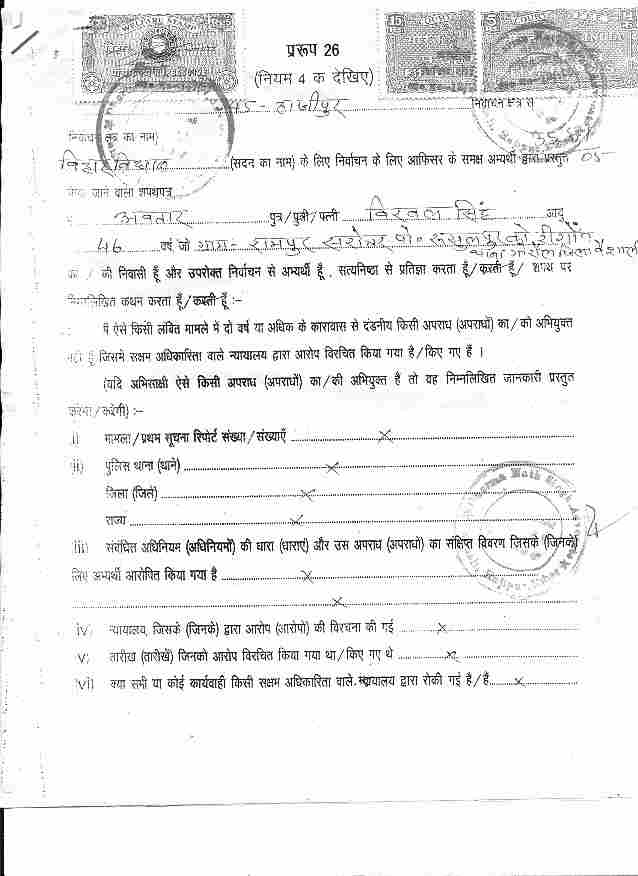 प्ररूप 26
(नियम 4 क देखिए)
45 - हाजीपुर निर्वाचन क्षेत्र से
निर्वाचन क्षेत्र का नाम)
(सदन का नाम) के लिए निर्वाचन के लिए आफिसर के समक्ष अभ्यर्थी द्वारा प्रस्तुत 05
किया जाने वाला शपथपत्र
अवतार पुत्र/पुत्री/पत्नी विरवल सिंह आयु
46 वर्ष जो ग्राम- रामपुर
का / की निवासी हूँ और उपरोक्त निर्वाचन से अभ्यर्थी हूँ, सत्यनिष्ठा से प्रतिज्ञा करता हूँ/करती हूँ/ शपथ पर
निम्नलिखित कथन करता हूँ/करती हूँ :-
मैं ऐसे किसी लंबित मामले में दो वर्ष या अधिक के कारावास से दंडनीय किसी अपराध (अपराधों) का/को अभियुक्त
नहीं हूँ जिसमे सक्षम अधिकारिता वाले न्यायालय द्वारा आरोप विरचित किया गया है/किए गए हैं ।
(यदि अभिसाक्षी ऐसे किसी अपराध (अपराधों) का/की अभियुक्त है तो वह निम्नलिखित जानकारी प्रस्तुत
करेगा/करेगी) :-
i) मामला/प्रथम सूचना रिपोर्ट संख्या/संख्याएँ x
ii) पुलिस थाना (थाने) x
जिला (जिले) x
राज्य x
iii) संबंधित अधिनियम (अधिनियमों) की धारा (धाराएं) और उस अपराध (अपराधों) का संक्षिप्त विवरण जिसके (जिनके)
लिए अभ्यर्थी आरोपित किया गया है x
x
iv) न्यायालय, जिसके (जिनके) द्वारा आरोप (आरोपों) की विरचना की गई x
v) तारीख (तारीखें) जिनको आरोप विरचित किया गया था/किए गए थे x
vi) क्या सभी या कोई कार्यवाही किसी सक्षम अधिकारिता वाले न्यायालय द्वारा रोकी गई है/हैं x